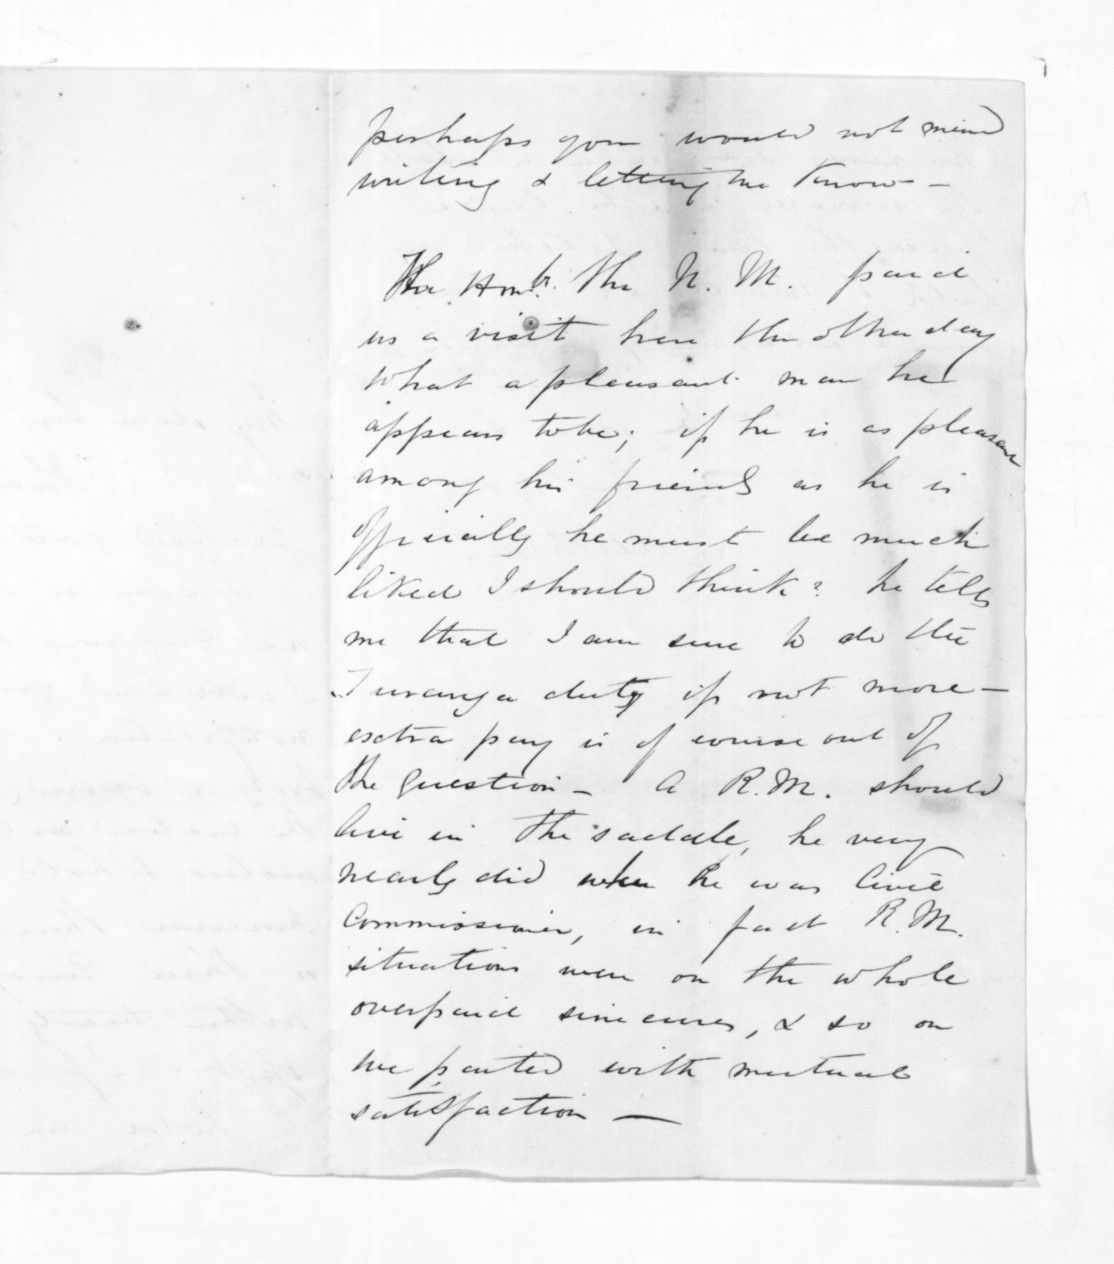 perhaps you would not mind
writing & letting me know -
The Honble. the N. M. paid
us a visit here the other day
what a pleasant man he
appears to be; if he is as pleasant
among his friends as he is
officially he must be much
liked I should think? he tells
me that I am sure to do the
Turanga duty if not more -
extra pay is of course out of
the question - A R.M. should
live in the saddle, he very
nearly did when he was Civil
Commissioner, in fact R.M.
situations were on the whole
overpaid sinecures, & so on
we parted with mutual
satisfaction -